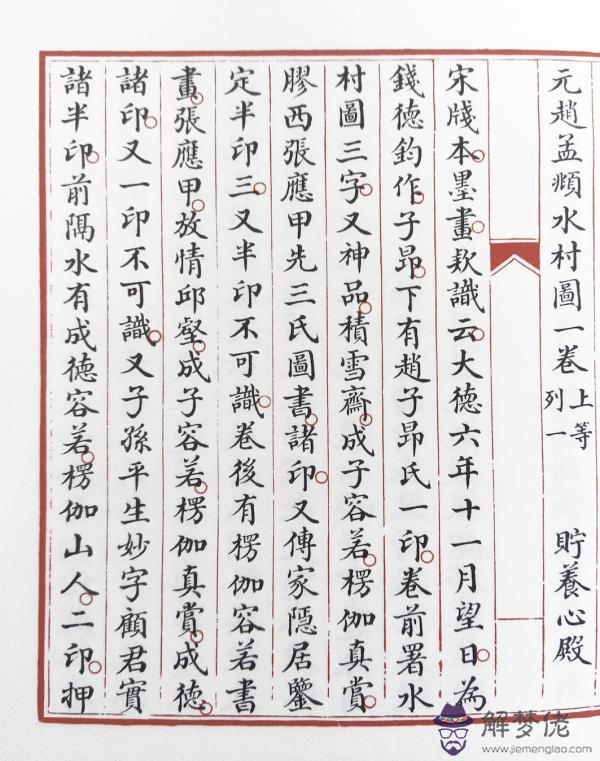 元趙孟頫水村圖一卷 上等列一 貯養心殿
宋牋本。墨畫。款識云。大德六年十一月望日。為
錢德鈞作。子昂。下有趙子昂氏一印。卷前署水
村圖三字。又神品。積雪齋。成子容若。楞伽真賞。
膠西張應甲先三氏圖書。諸印。又傳家隱居鑒
定半印三。又半印不可識。卷後有楞伽容若書
畫。張應甲。放情邱壑。成子容若。楞伽真賞。成德。
諸印。又一印不可識。又子孫平生妙字顧君實
諸半印。前隔水有成德容若。楞伽山人。二印。押
解梦佬
www.jiemenglao.com